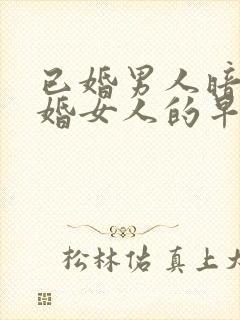 已婚男人暗
婚女人的早
松林佑真上大